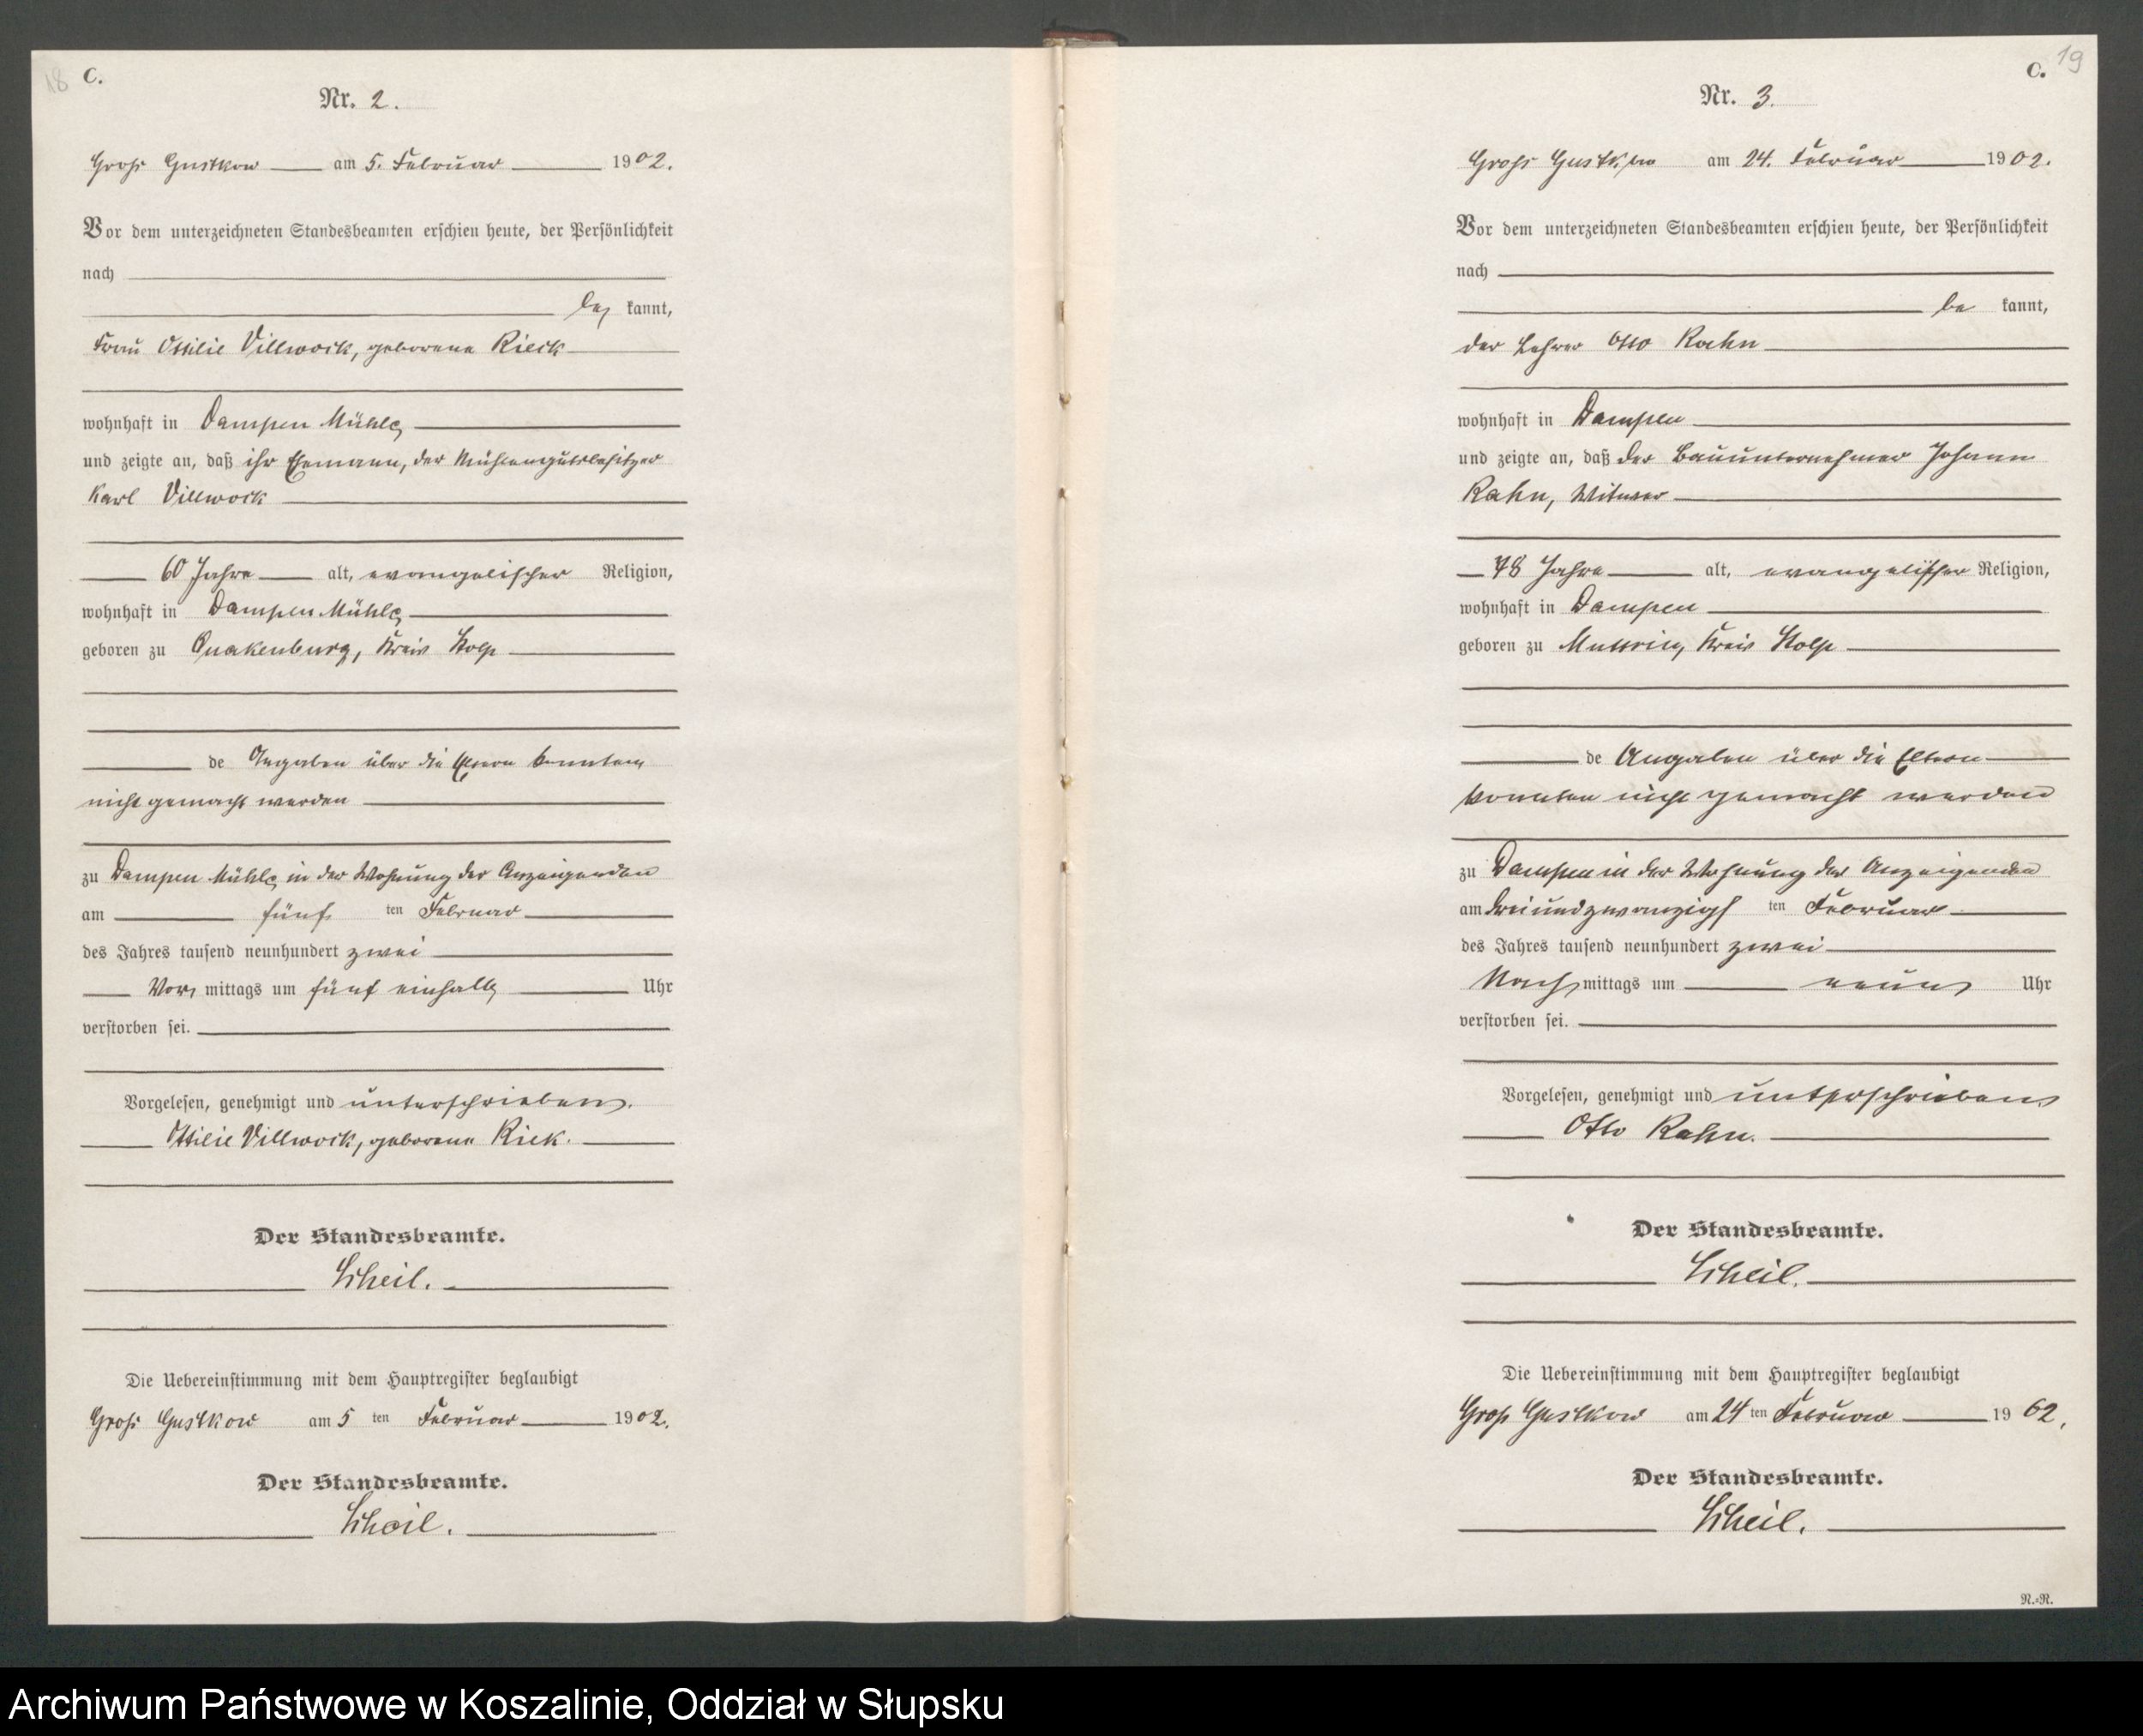 18
C.
Nr. 2.
Groß Gustkow am 5. Februar 1902.
Vor dem unterzeichneten Standesbeamten erschien heute, der Persönlichkeit
nach
be kannt,
Frau Ottilie Villwock, geborene Rieck
wohnhaft in Dampen Mühle
und zeigte an, daß ihr Ehemann, der Mühlengutsbesitzer
Karl Villwock
60 Jahre alt, evangelischer Religion,
wohnhaft in Dampen Mühle
geboren zu Quakenburg, Kreis Stolp
de Angaben über die Eltern konnten
nicht gemacht werden
zu Dampen Mühle in der Wohnung der Anzeigenden
am fünf ten Februar
des Jahres tausend neunhundert zwei
Vor mittags um fünf einhalb Uhr
verstorben sei.
Vorgelesen, genehmigt und unterschrieben.
Ottilie Villwock, geborene Riek.
Der Standesbeamte.
Scheil.
Die Uebereinstimmung mit dem Hauptregister beglaubigt
Groß Gustkow am 5 ten Februar 1902.
Der Standesbeamte.
Scheil.
19
C.
Nr. 3.
Groß Gustkow am 24. Februar 1902.
Vor dem unterzeichneten Standesbeamten erschien heute, der Persönlichkeit
nach
be kannt,
der Lehrer Otto Rahn
wohnhaft in Dampen
und zeigte an, daß der Bauunternehmer Johann
Rahn, Witwer
78 Jahre alt, evangelischer Religion,
wohnhaft in Dampen
geboren zu Muttrin, Kreis Stolp
de Angaben über die Eltern
konnten nicht gemacht werden
zu Dampen in der Wohnung des Anzeigenden
am dreiundzwanzigs ten Februar
des Jahres tausend neunhundert zwei
Nach mittags um neun Uhr
verstorben sei.
Vorgelesen, genehmigt und unterschrieben
Otto Rahn.
Der Standesbeamte.
Scheil.
Die Uebereinstimmung mit dem Hauptregister beglaubigt
Groß Gustkow am 24 ten Februar 1902.
Der Standesbeamte.
Scheil.
N.-N.
Archiwum Państwowe w Koszalinie, Oddział w Słupsku